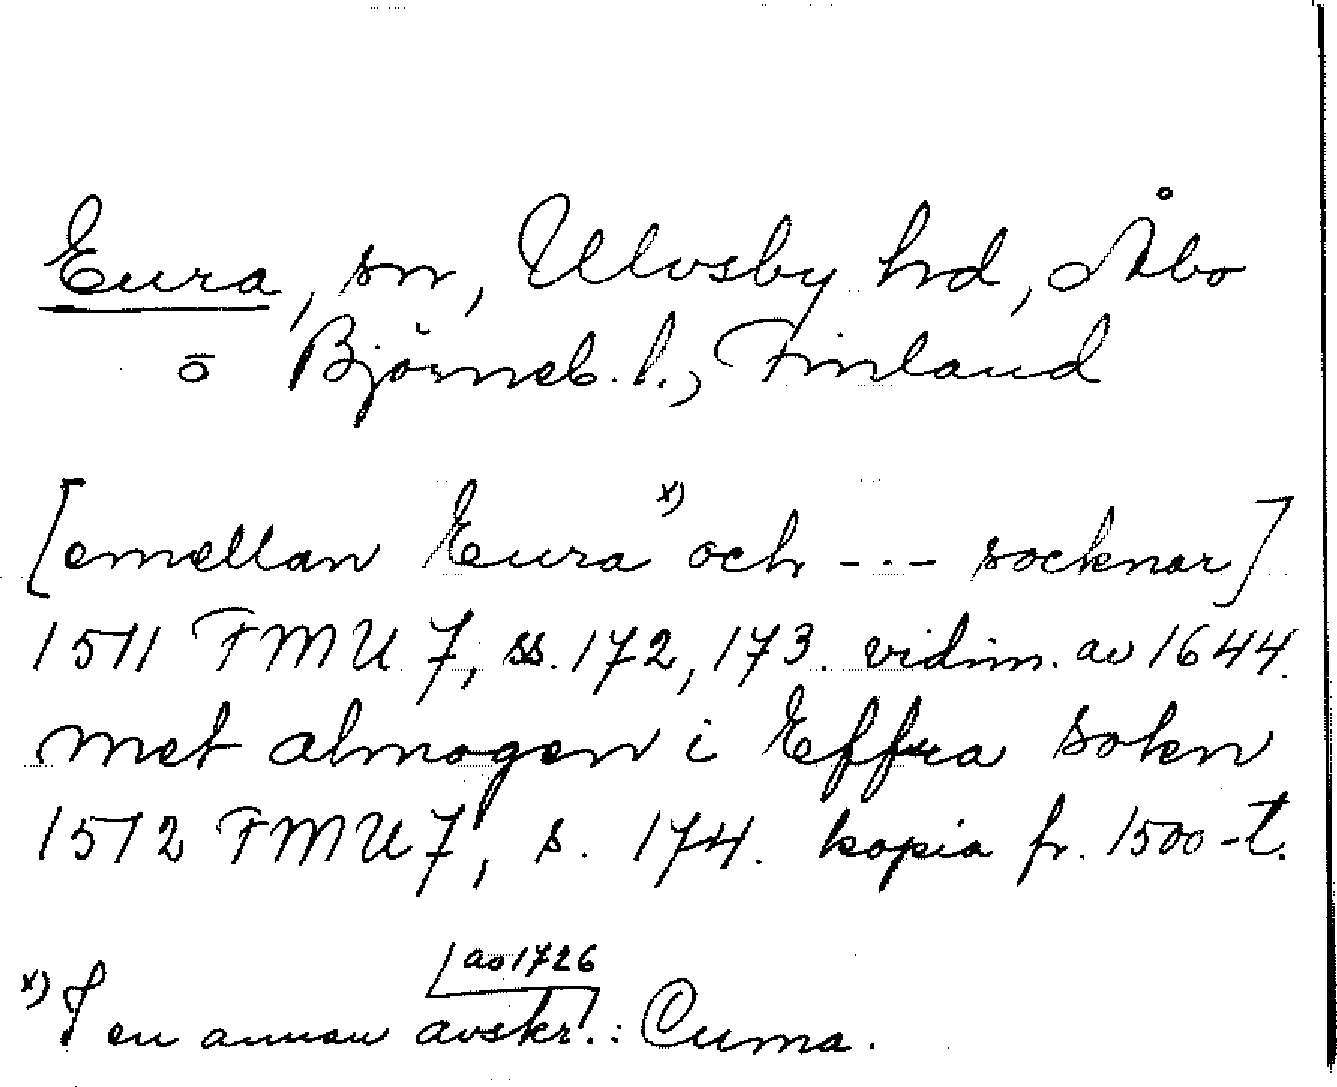 Eura, sn, Ulvsby hd, Åbo
o Björneb. l., Finland
[emellan Eura x) och --- socknar]
1511 FMU 7, ss. 172, 173. vidim. av 1644.
met almogen i Effra sokn
1512 FMU 7, s. 174. kopia fr. 1500-t.
av 1726
x) I en annan avskr.: Cuma.